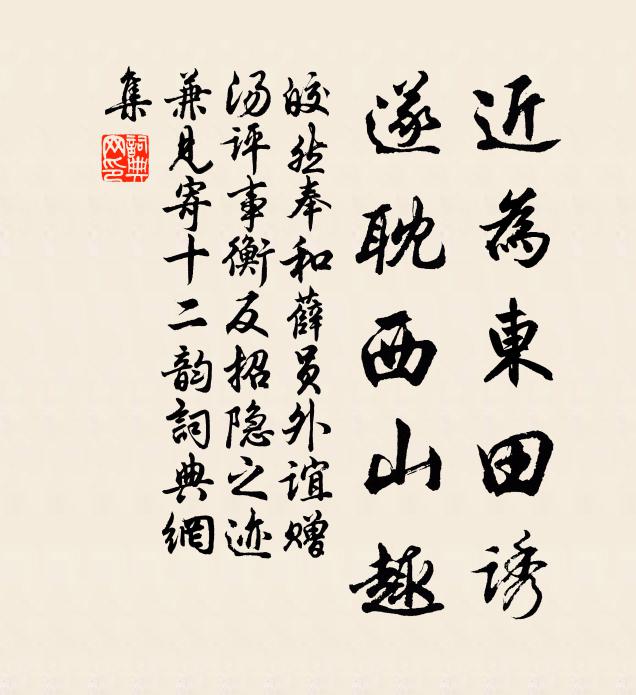 近為東田誘
遂耽西山趣
皎然奉和薛員外誼赠
汤评事衡反招隐之迹
兼見寄十二韵詞典網
集
詞典
网印